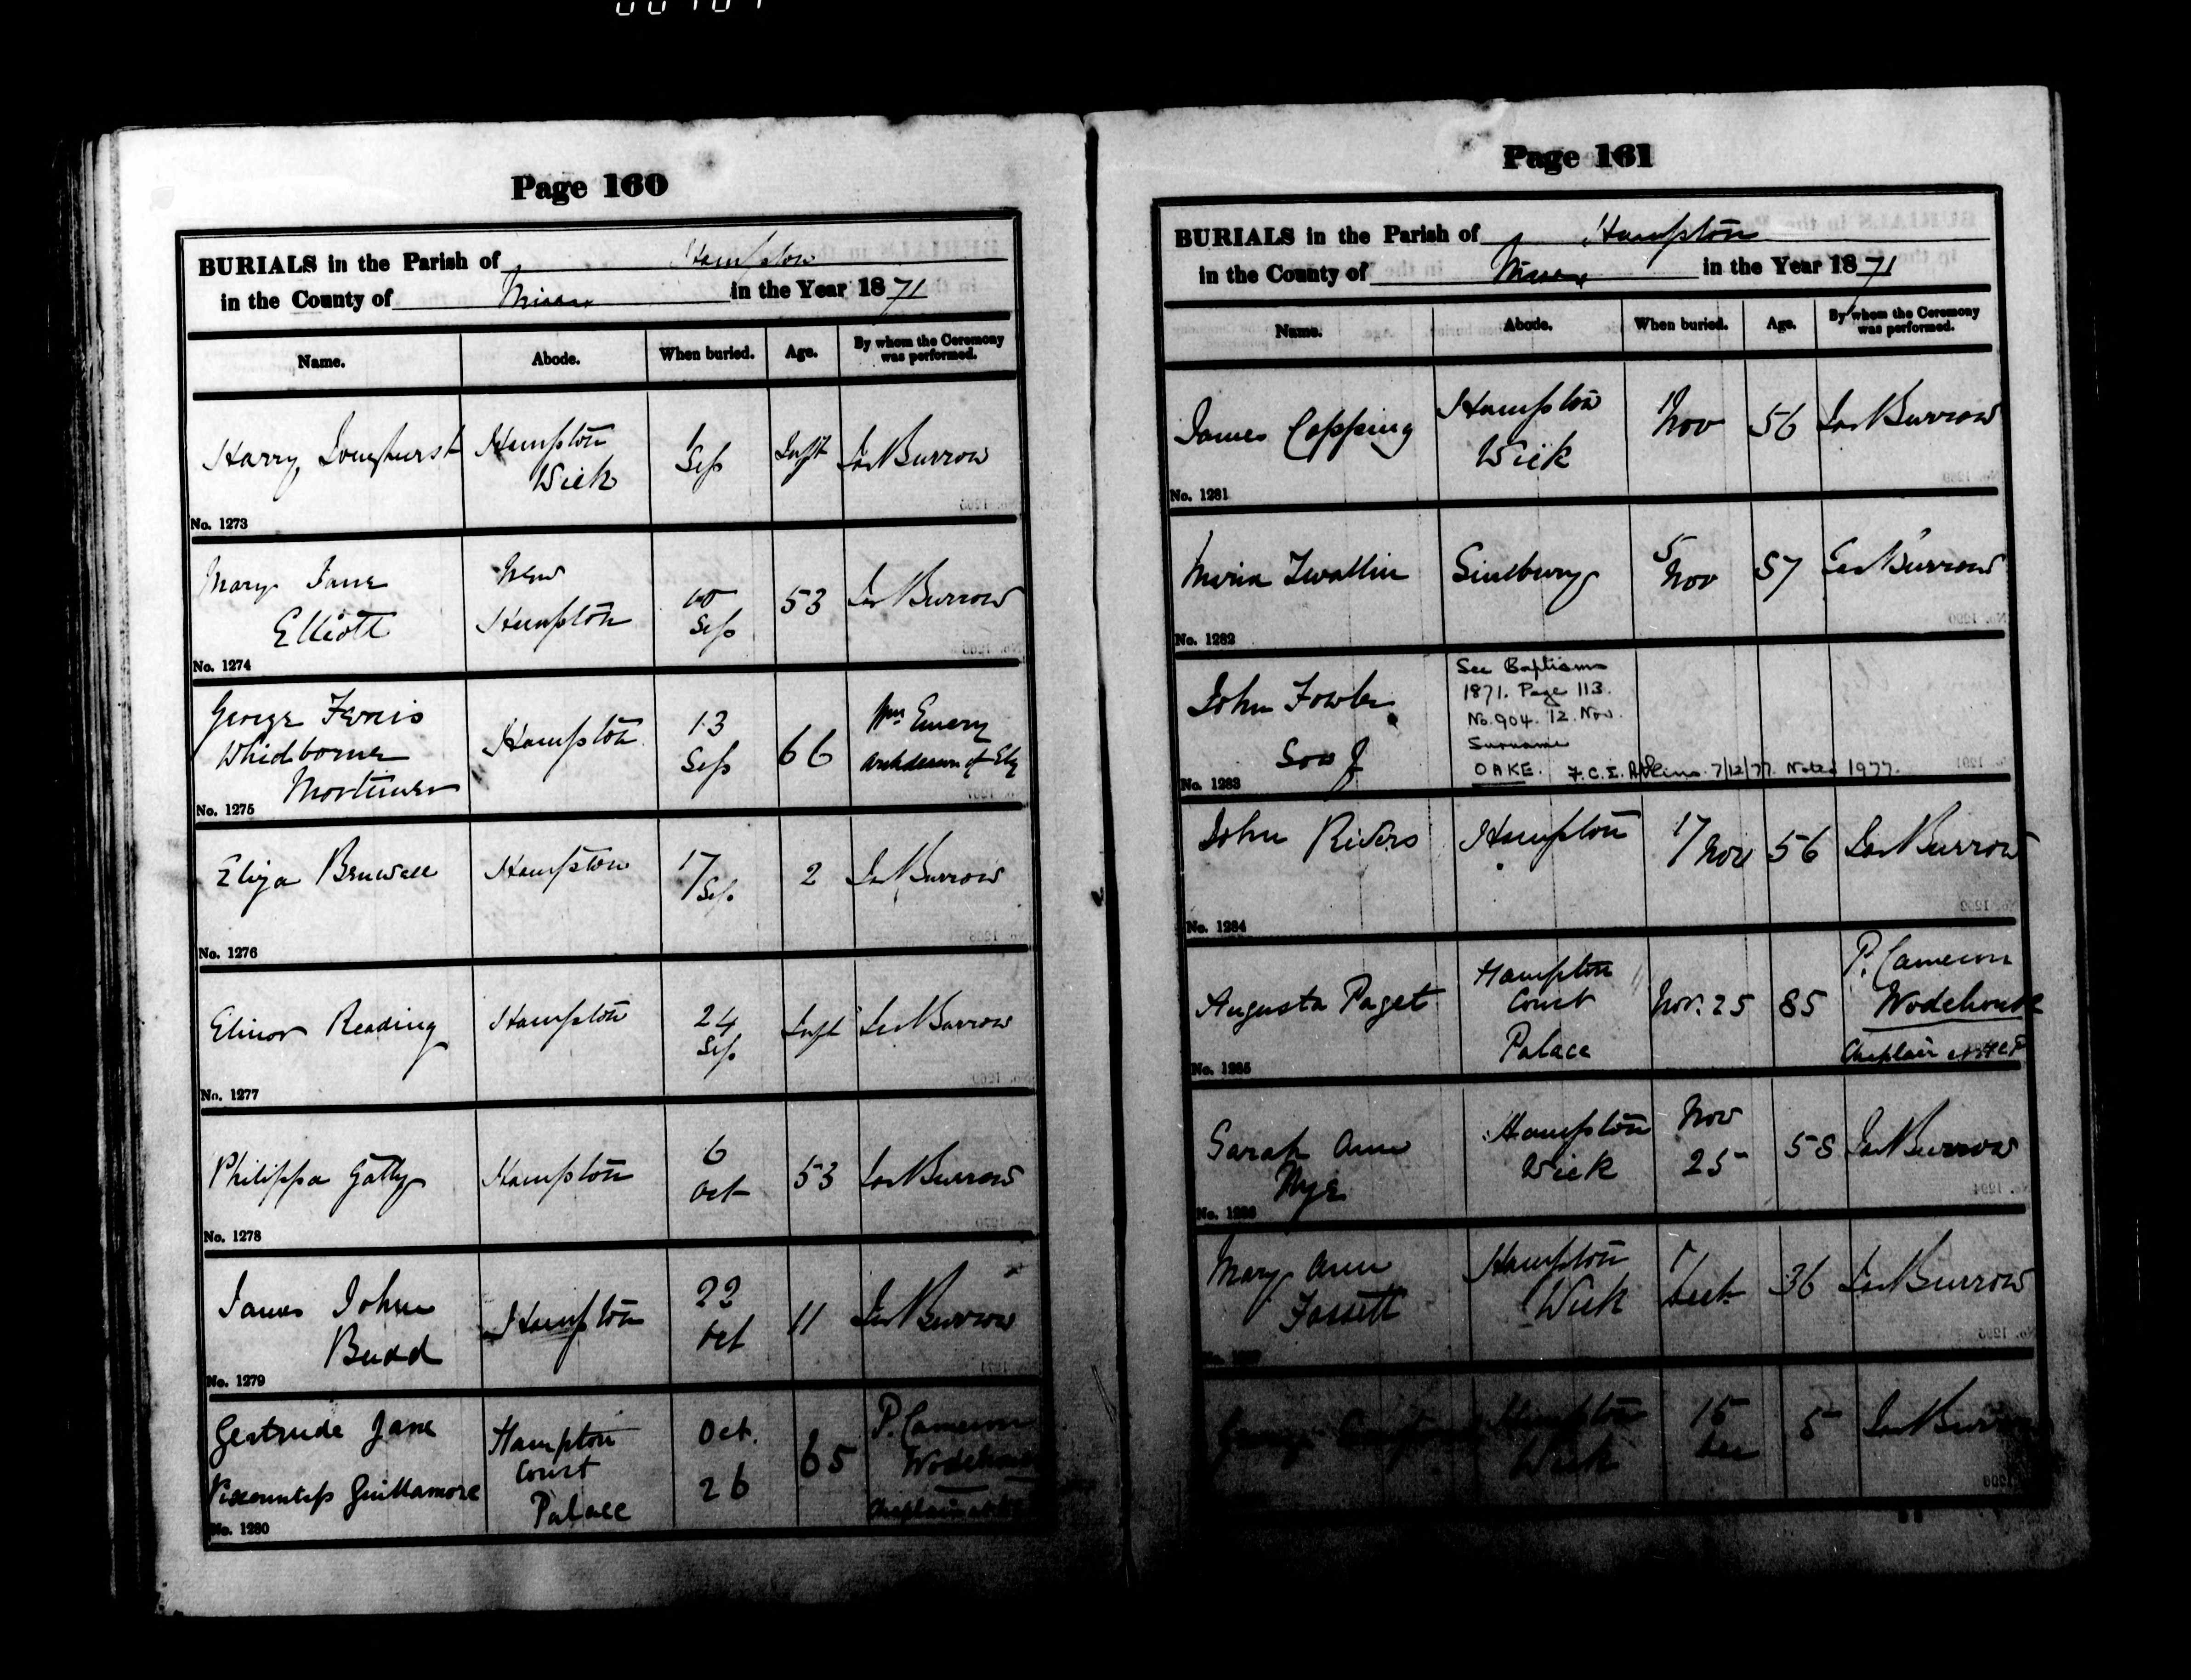 Page 160
BURIALS in the Parish of Hampton
in the County of Middx in the Year 1871
Name. Abode. When buried. Age. By whom the Ceremony was performed.
Harry Longhurst Hampton Wick 1 Sep Inft Jas Burrow
No. 1273
Mary Jane Elliott New Hampton 10 Sep 53 Jas Burrow
No. 1274
George Ferris Whidborne Mortimer Hampton 13 Sep 66 Wm Emery Archdeacon of Ely
No. 1275
Eliza Hampton 17 Sep 2 Jas Burrow
No. 1276
Elinor Reading Hampton 24 Sep Inft Jas Burrow
No. 1277
Philippa Gatty Hampton 6 Oct 53 Jas Burrow
No. 1278
James John Budd Hampton 22 Oct 11 Jas Burrow
No. 1279
Gertrude Jane Viscountess Guillamore Hampton Court Palace Oct. 26 65 P. Cameron Wodehouse Chaplain
No. 1280
Page 161
BURIALS in the Parish of Hampton
in the County of Middx in the Year 1871
Name. Abode. When buried. Age. By whom the Ceremony was performed.
James Copping Hampton Wick 1 Nov 56 Jas Burrow
No. 1281
Maria Twallin Sunbury 5 Nov 57 Jas Burrow
No. 1282
John Fowler
Son of
See Baptisms
1871. Page 113.
No. 904. 12. Nov.
Surname
OAKE. F.C.E. Atkins. 7/12/77. Noted 1977.
No. 1283
John Rivers Hampton 17 Nov 56 Jas Burrow
No. 1284
Augusta Paget Hampton Court Palace Nov. 25 85 P. Cameron Wodehouse Chaplain of HCP
No. 1285
Sarah Ann Nye Hampton Wick Nov 25 58 Jas Burrow
No. 1286
Mary Ann Fassett Hampton Wick 36 Jas Burrow
George Hampton Wick 15 Dec 5 Jas Burrow